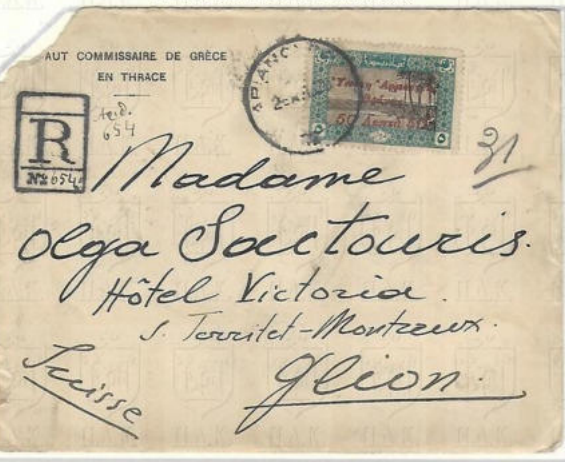 AUT COMMISSAIRE DE GRÈCE
EN THRACE
R
No 654
654
31
Madame
Olga Sactouris.
Hôtel Victoria.
s. Territet-Montreux.
Glion.
Suisse